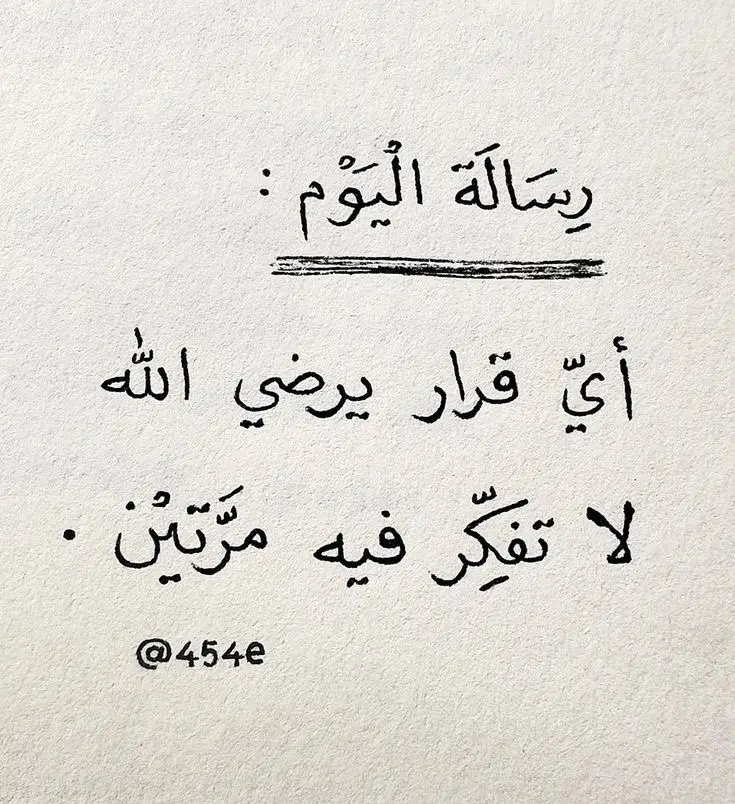 رِسَالَة الْيَوْم :
أيّ قرار يرضي الله
لا تفكِّر فيه مرَّتيْن .
@454e